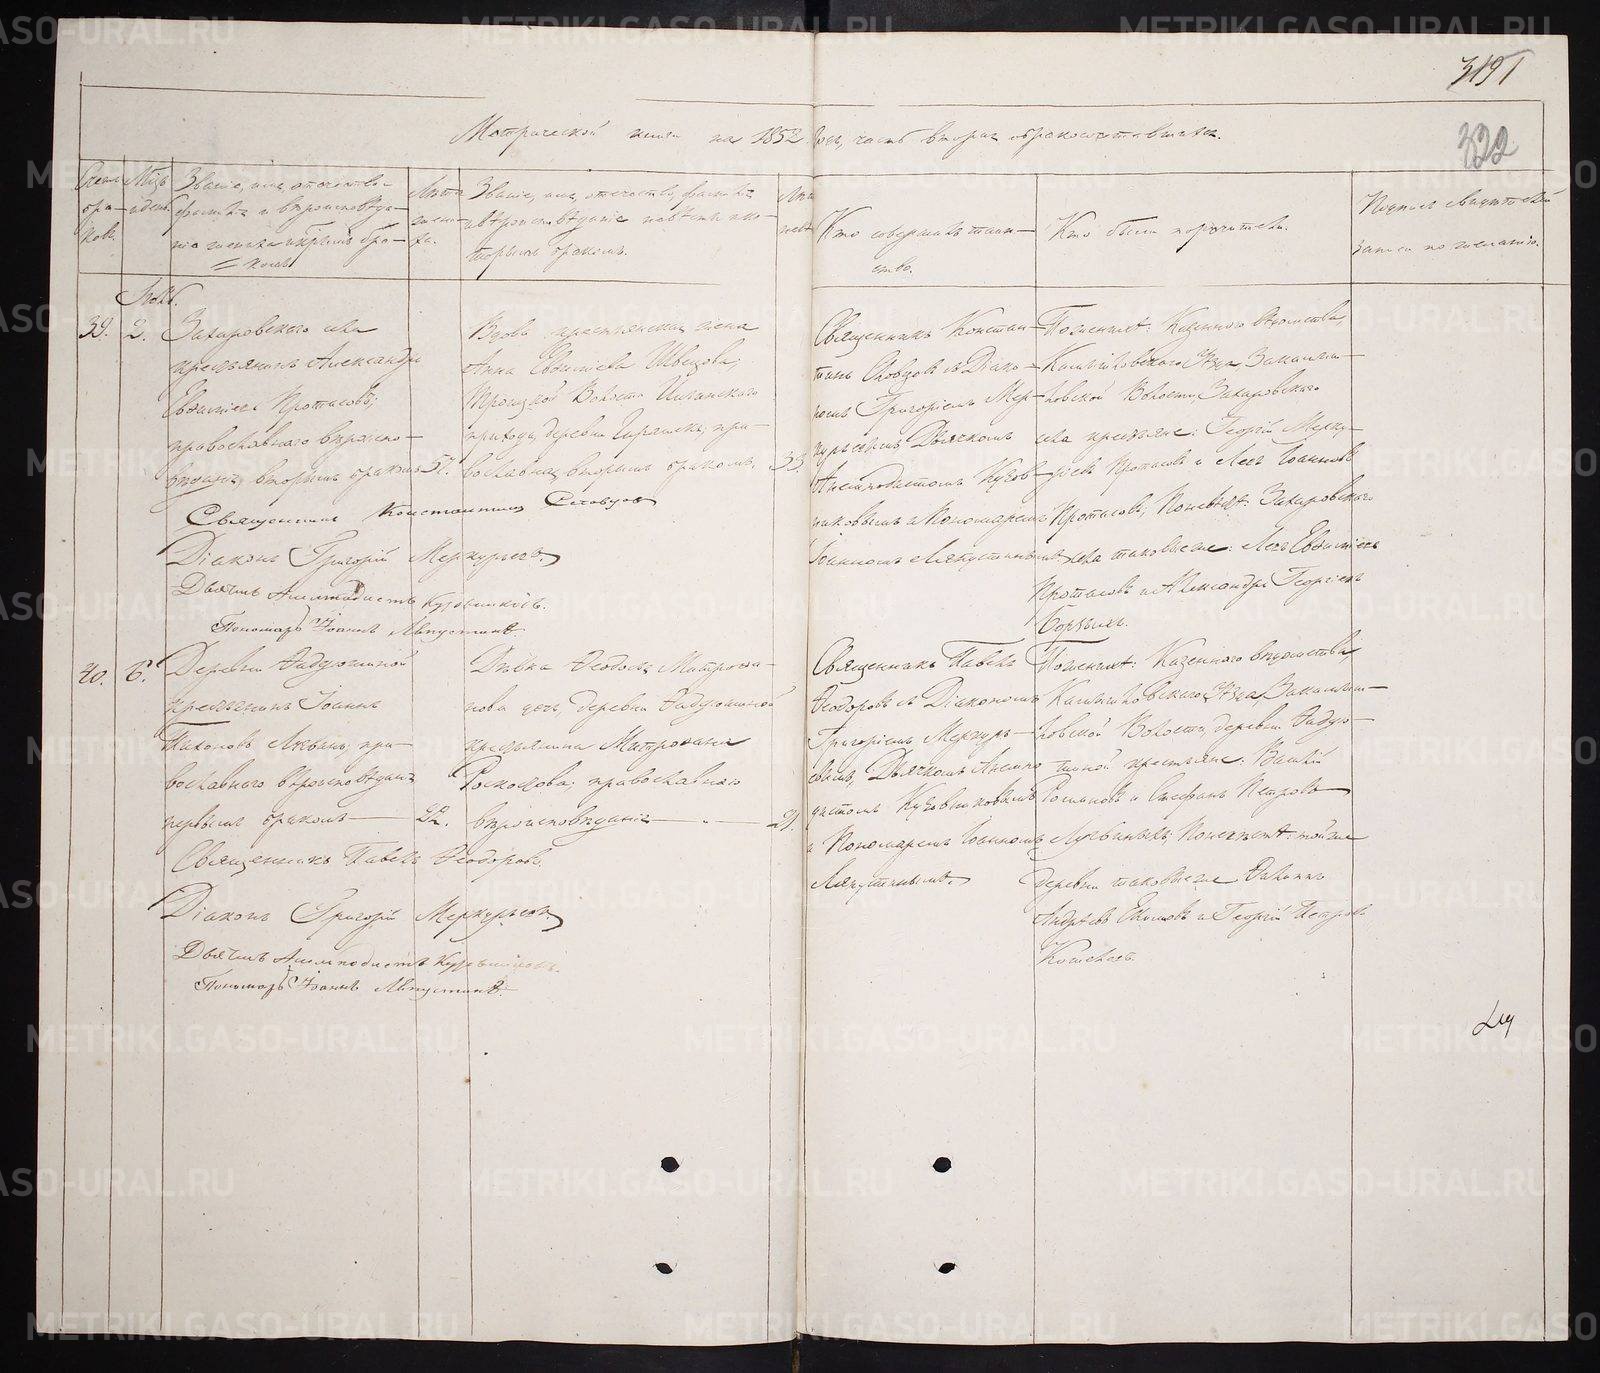 3191
322
Метрической книги на 1852 годъ, часть вторая о бракосочетавшихся.
Счетъ браковъ.
Мѣсяцъ и день.
Званіе, имя, отечество,
фамилія и вѣроисповѣда-
ніе жениха и которымъ бра-
комъ
Лѣта
жени-
ха.
Званіе, имя, отечество, фамилія
и вѣроисповѣданіе невѣсты и ко-
торымъ бракомъ.
Лѣта
невѣ
Кто совершалъ таин-
ство.
Кто были поручители.
Подпись свидѣтелей
записи по желанію.
Нояб.
39. 2.
Захаровскаго села
крестьянинъ Александръ
Евдокимовъ Протасовъ;
православнаго вѣроиспо-
вѣданія, вторымъ бракомъ 52.
Вдова крестьянская жена
Анна Швецова;
Троицкой Волости
прихода, деревни пра-
вославная, вторымъ бракомъ. 33
Священникъ Констан-
тинъ Словцовъ съ Діако-
номъ Григоріемъ Мер-
курьевымъ Дьячкомъ
Анемподистомъ Кузов-
никовымъ и Пономаремъ
Іоанномъ Ляпустинымъ.
По женихѣ: Казеннаго вѣдомства,
Камышловскаго уѣзда, Закамыш-
ловской Волости, Захаровскаго
села крестьяне: Георгій Мерку-
рьевъ Протасовъ и Левъ Іоанновъ
Протасовъ; По невѣстѣ: Захаровскаго
села таковые же: Левъ
Протасовъ и Александръ Георгіевъ
Борзыхъ.
Священникъ Константинъ Словцовъ
Діаконъ Григорій Меркурьевъ
Дьячекъ Анемподистъ Кузовниковъ.
Пономарь Іоаннъ Ляпустинъ.
40. 6.
Деревни Фадюшиной
крестьянинъ Іоаннъ
пра-
вославнаго вѣроисповѣданія
первымъ бракомъ 22.
Дѣвка Ѳеодосія Митрофа-
нова дочь, деревни Фадюшиной
крестьянина Митрофана
православнаго
вѣроисповѣданія 21.
Священникъ Павелъ
Ѳеодоровъ съ Діакономъ
Григоріемъ Меркурь-
евымъ, Дьячкомъ Анемпо
дистомъ Кузовниковымъ
и Пономаремъ Іоанномъ
Ляпустинымъ.
По женихѣ: Казеннаго вѣдомства,
Камышловскаго уѣзда, Закамыш-
ловской Волости, деревни Фадю-
шиной крестьяне: Василій
Романовъ и Стефанъ Петровъ
По невѣстѣ той же
деревни таковые же
Андреевъ и Георгій Петровъ
Кошелевъ.
Священникъ Павелъ Ѳеодоровъ.
Діаконъ Григорій Меркурьевъ
Дьячекъ Анемподистъ Кузовниковъ.
Пономарь Іоаннъ Ляпустинъ.
METRIKI.GASO-URAL.RU